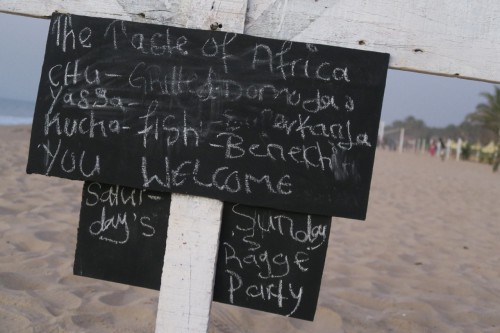 The Taste of Africa
CHU - Grilled - Domoda's
Yassa -
Kucha - fish - Benechin
YOU WELCOME
SATUR-
day's
Sunday
Ragge
Party